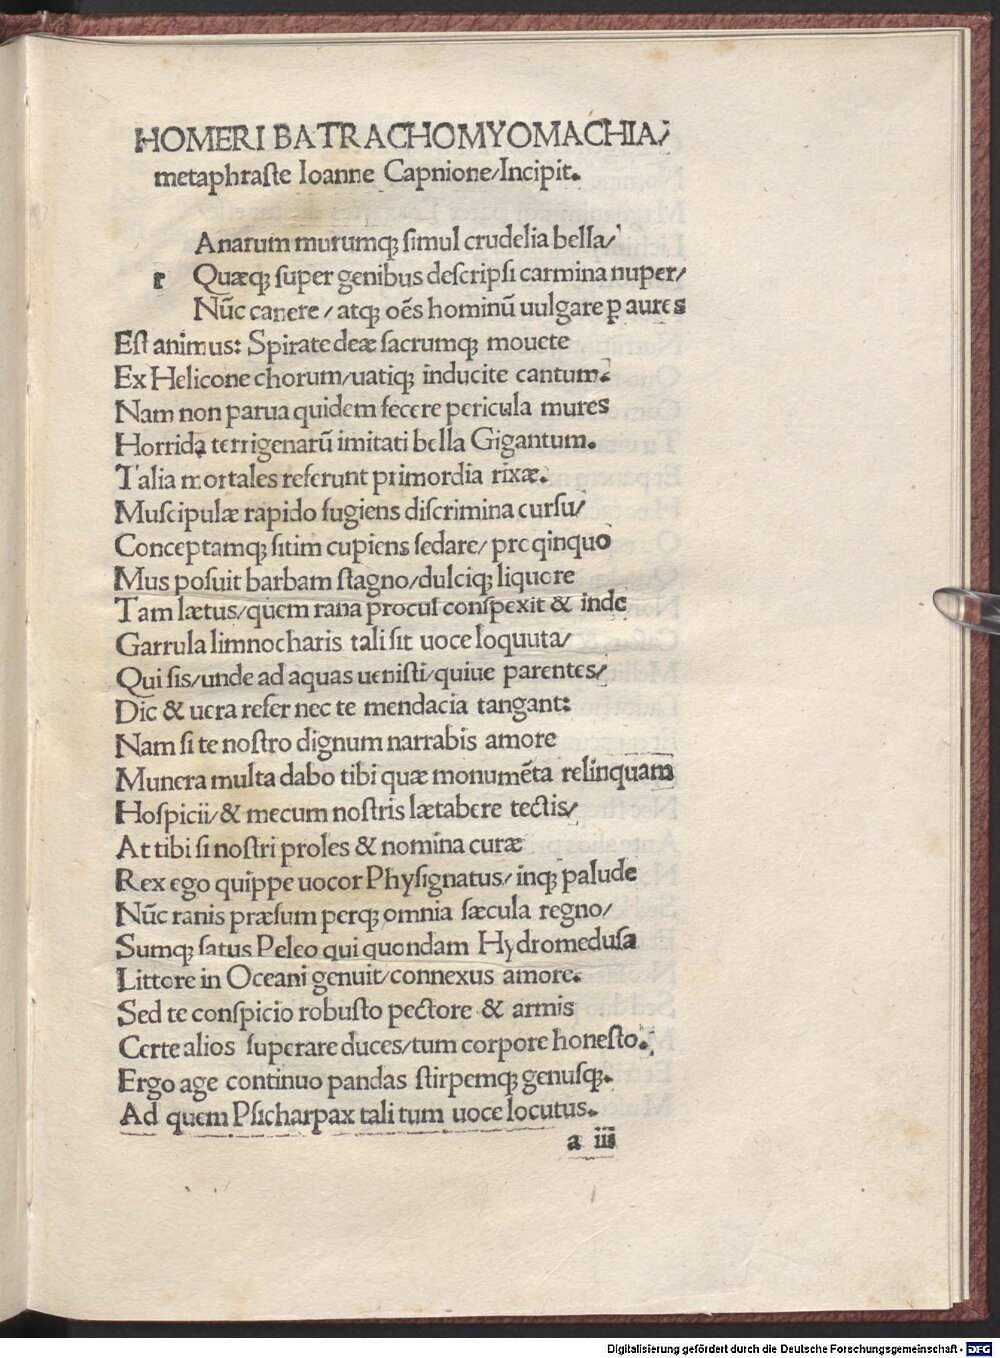 HOMERI BATRACHOMYOMACHIA/
metaphraſte Ioanne Capnione/Incipit.
Anarum murumqꝫ ſimul crudelia bella/
r Quæqꝫ ſuper genibus deſcripſi carmina nuper/
Nūc canere/atqꝫ oēs hominū uulgare ꝑ aures
Eſt animus: Spirate deæ ſacrumqꝫ mouete
Ex Helicone chorum/uatiqꝫ inducite cantum.
Nam non parua quidem fecere pericula mures
Horrida terrigenarū imitati bella Gigantum.
Talia mortales referunt primordia rixæ.
Muſcipulæ rapido fugiens diſcrimina curſu/
Conceptamqꝫ ſitim cupiens ſedare/propinquo
Mus poſuit barbam ſtagno/dulciqꝫ liquore
Tam lætus/quem rana procul conſpexit & inde
Garrula limnocharis tali ſit uoce loquuta/
Qui ſis/unde ad aquas ueniſti/quiue parentes/
Dic & uera refer nec te mendacia tangant:
Nam ſi te noſtro dignum narrabis amore
Munera multa dabo tibi quæ monumēta relinquam
Hoſpicii/& mecum noſtris lætabere tectis/
At tibi ſi noſtri proles & nomina curæ
Rex ego quippe uocor Phyſignatus/inqꝫ palude
Nūc ranis præſum perqꝫ omnia ſæcula regno/
Sumqꝫ ſatus Peleo qui quondam Hydromeduſa
Littore in Oceani genuit/connexus amore.
Sed te conſpicio robuſto pectore & armis
Certe alios ſuperare duces/tum corpore honeſto.
Ergo age continuo pandas ſtirpemqꝫ genuſqꝫ.
Ad quem Pſicharpax tali tum uoce locutus.
a iii
Digitalisierung gefördert durch die Deutsche Forschungsgemeinschaft - DFG